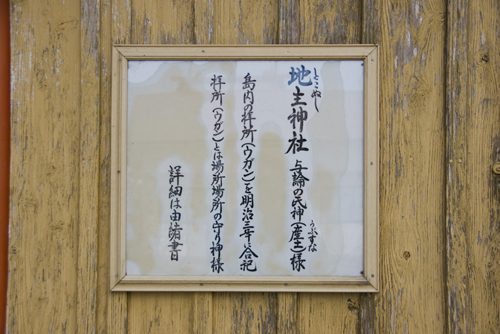 とこぬし
地主神社 与論の氏神(産土)様
うぶすな
島内の拝所(ウガン)を明治三年合祀
拝所(ウガン)とは場所場所の守り神様
詳細は由緒書